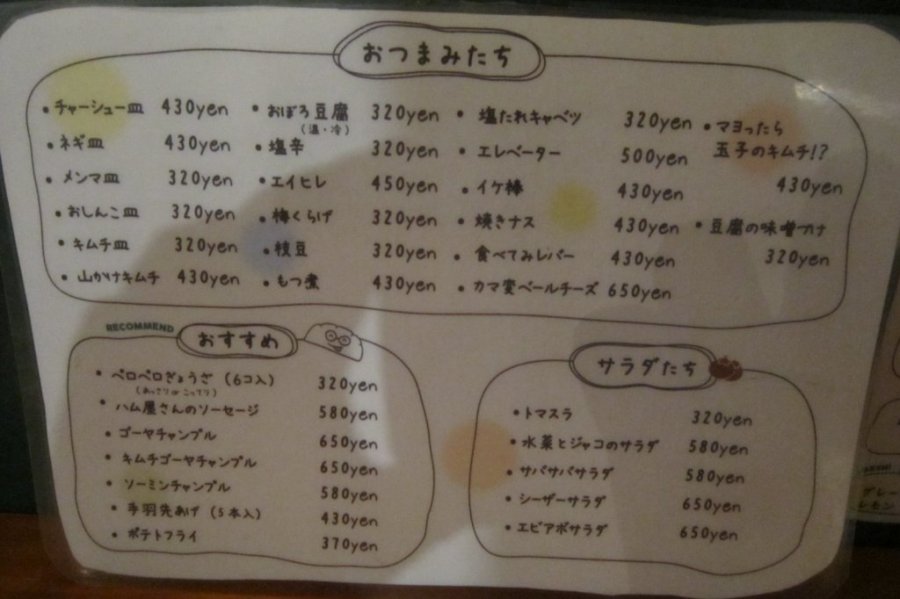 おつまみたち
・チャーシュー皿 430yen
・ネギ皿 430yen
・メンマ皿 320yen
・おしんこ皿 320yen
・キムチ皿 320yen
・山かけキムチ 430yen
・おぼろ豆腐 320yen
(温・冷)
・塩辛 320yen
・エイヒレ 450yen
・梅くらげ 320yen
・枝豆 320yen
・もつ煮 430yen
・塩たれキャベツ 320yen
・エレベーター 500yen
・イケ棒 430yen
・焼きナス 430yen
・食べてみレバー 430yen
・カマ変ベールチーズ 650yen
・マヨったら
玉子のキムチ!?
430yen
・豆腐の味噌づけ
320yen
RECOMMEND
おすすめ
・ペロペロぎょうざ (6コ入) 320yen
(あっさり or こってり)
・ハム屋さんのソーセージ 580yen
・ゴーヤチャンプル 650yen
・キムチゴーヤチャンプル 650yen
・ソーミンチャンプル 580yen
・手羽先あげ (5本入) 430yen
・ポテトフライ 370yen
サラダたち
・トマスラ 320yen
・水菜とジャコのサラダ 580yen
・サバサバサラダ 580yen
・シーザーサラダ 650yen
・エビアボサラダ 650yen
グレー
レモン